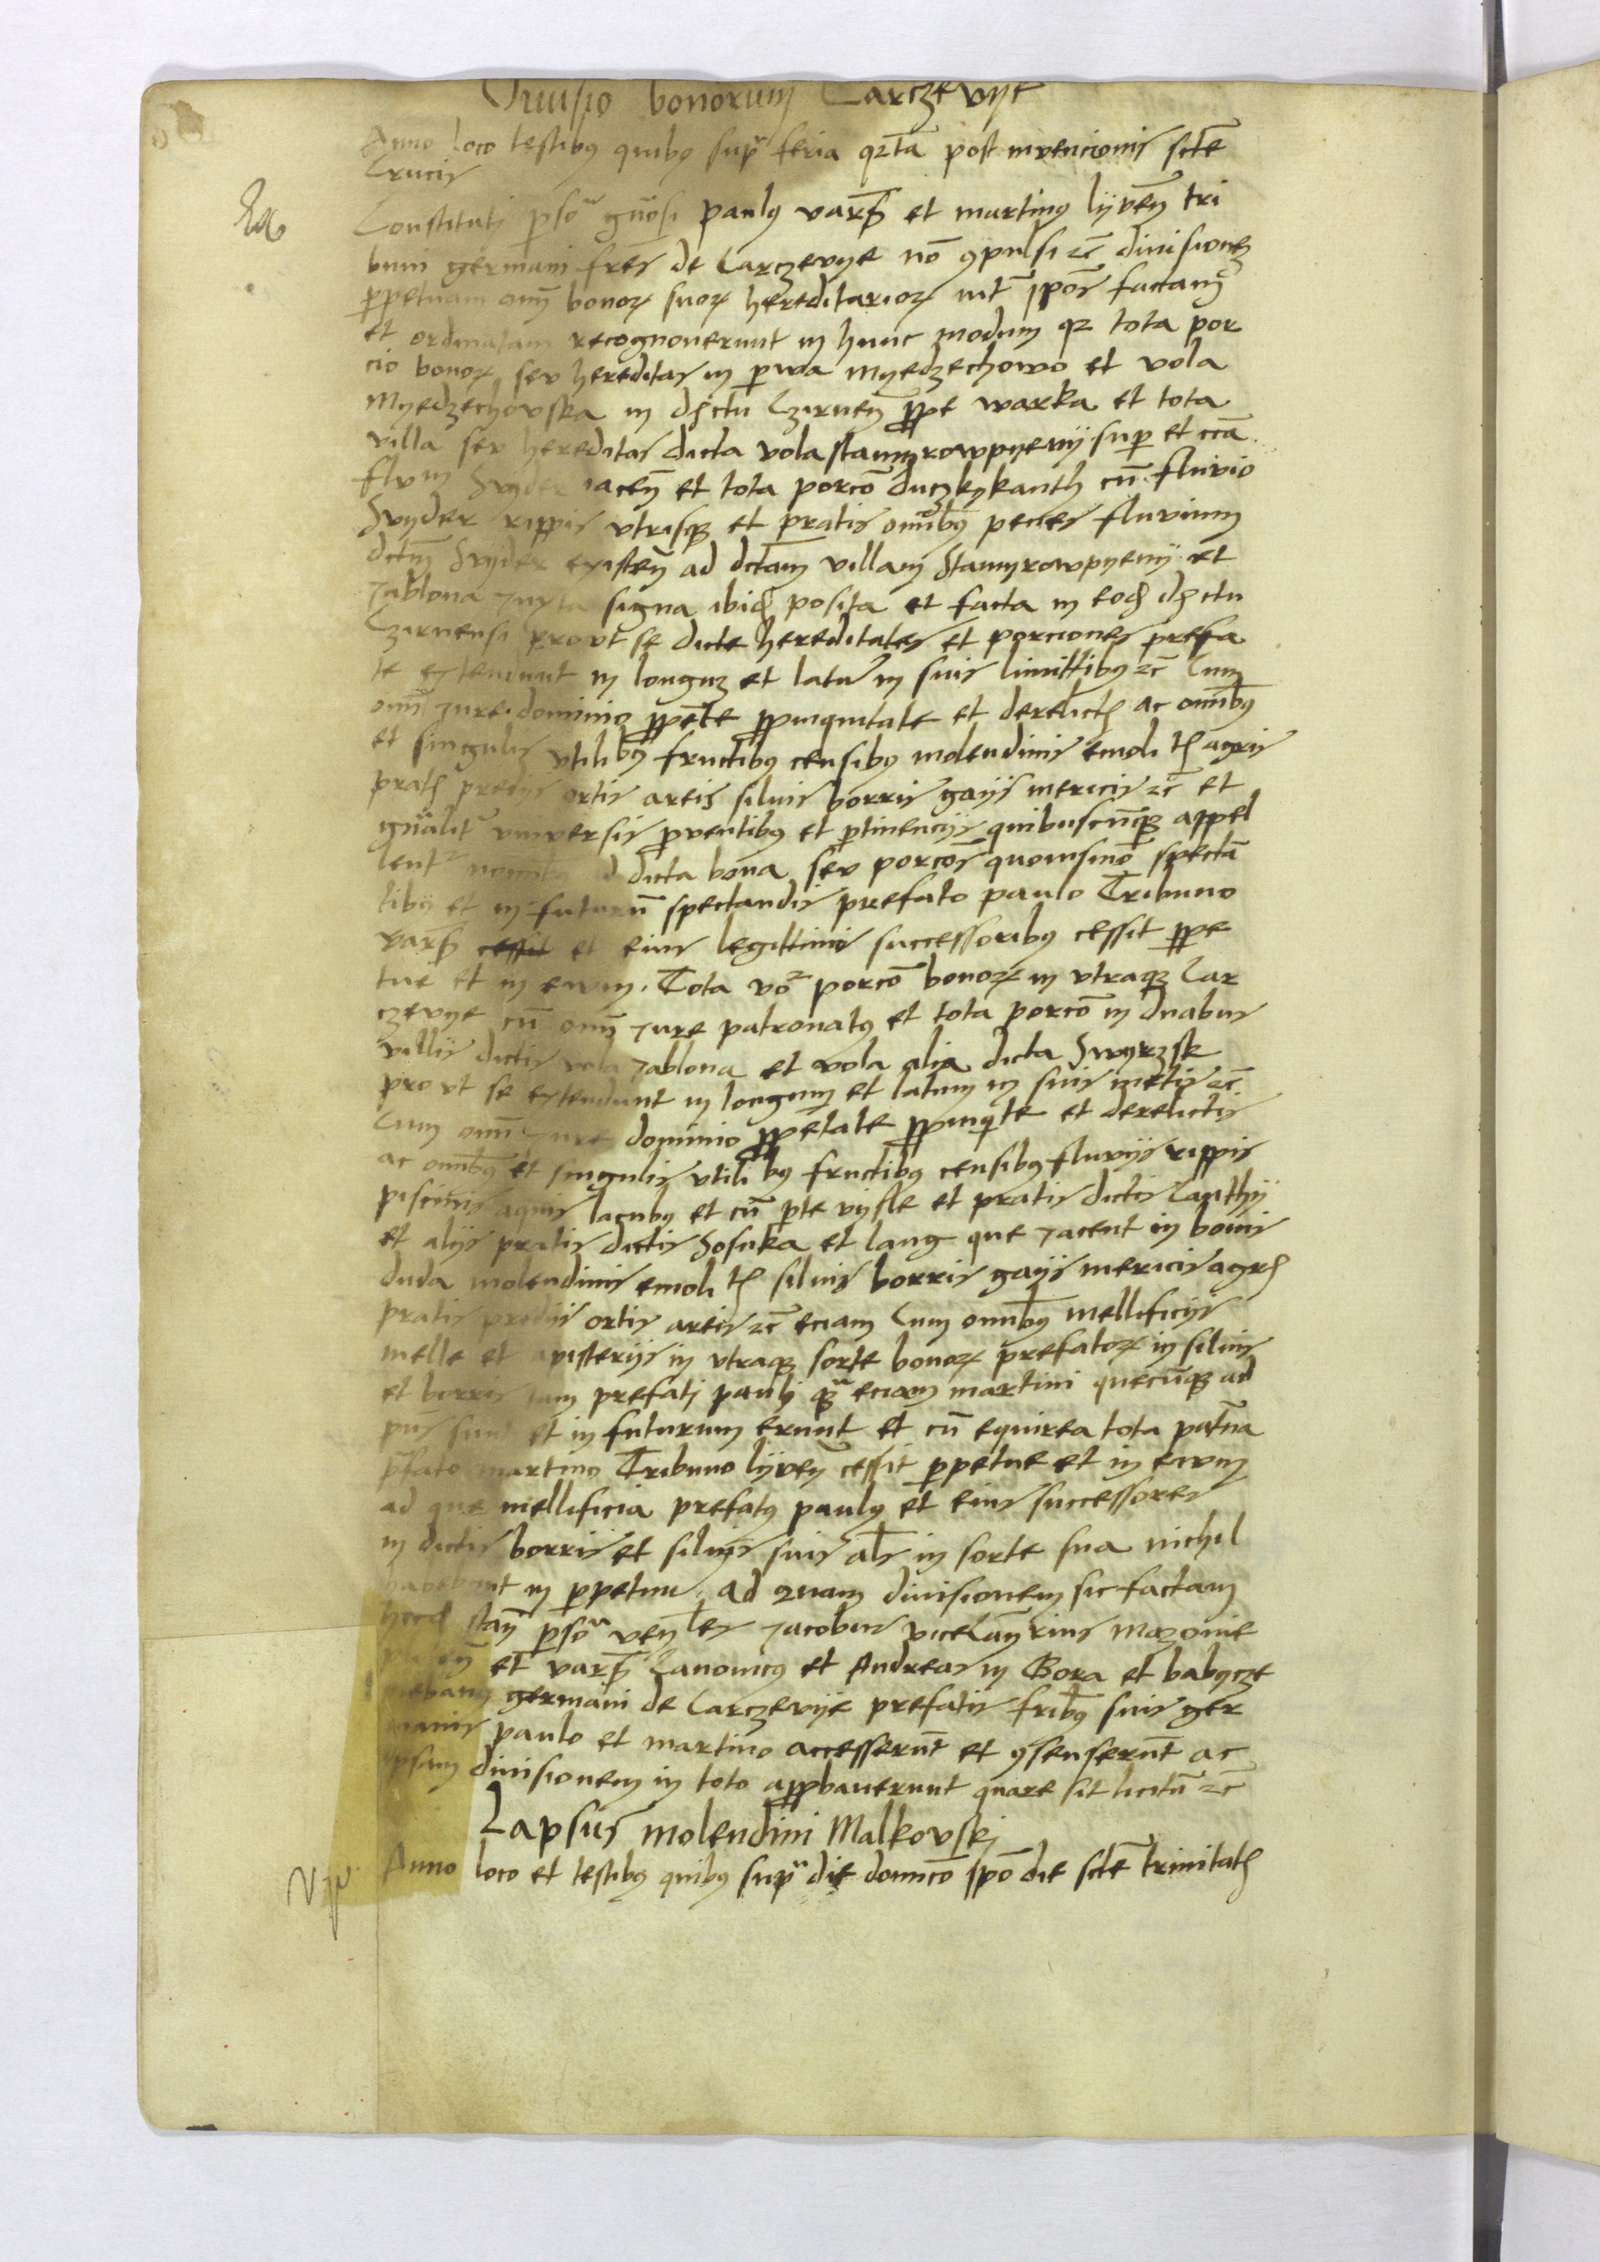 Divisio bonorum Carczevye
Anno loco testibus quibus supra feria qrta post invencionis scte
Crucis
Constituti psor gnosi paulus vars et martinus lyven tri
buni germani fres de Carczevye no compulsi etc divisionem
ppetuam omm bonor suor hereditarior int ipos factam
et ordinatam recognoverunt in hunc modum qr tota por
cio bonor seu hereditas in parva Myedzechowo et vola
Myedzechovska in dstctu Czirnen prope warka et tota
villa seu hereditas dicta vola stamyrowpyeny sup et cca
fluvm Svyder iacen et tota porco duczkykanth cu fluvio
Svyder rippis utrisque et pratis omibus penes fluvium
dctm Svyder existen ad dctam villam Stamyrowpyeny et
Jablona Juxta signa ibid posita et facta in eod dstctu
Czirnensi prout se dicte hereditates et porciones prefa
te extendunt in longum et latum in suis limittibus etc Cum
omi Jure dominio proprietate propinquitate et derelictis ac omibus
et singulis utilibus fructibus censibus molendinis emolitis agris
pratis prediis ortis areis silvis borris gayis mericis etc et
gnalitr universis proventibus et ptinenciis quibuscunque appel
lentr nomibus ad dicta bona seu porcos quomsino specta
tibus et in futurum spectandis prefato paulo Tribuno
vars cessit et eius legittimis successoribus cessit perpe
tue et in evum. Tota vo porco bonor in utraque Car
czevye cu omi Jure patronatus et tota porco in duabus
villis dictis vola Jablona et vola alia dicta Swyrzsk
prout se extendunt in longum et latum in suis metis etc
Cum omi Jure dominio proprietate propinqte et derelictis
ac omibus et singulis utilibus fructibus censibus fluviis rippis
piscinis aquis lacubus et cu parte visle et pratis dictis Canthy
et aliis pratis dictis Sosnka et lang que Jacent in bonis
duda molendinis emolitis silvis borris gayis mericis agris
pratis prediis ortis areis etc eciam Cum omibus mellificiis
melle et apisteriis in utraque sorte bonor prefator in silvis
et borris tam prefati pauli qua eciam martini quecunque ad
pns sunt et in futurum erunt et cu equirea tota patna
pfato martino Tribuno lyven cessit perpetue et in evum
ad que mellificia prefatus paulus et eius successores
in dictis borris et silvis suis als in sorte sua nichil
habebunt in perpetuum. Ad quam divisionem sic factam
stan psor venles Jacobus vicecanrius Mazovie
et vars Canonicus et Andreas in Gora et babycze
plebanus germani de Carczevye prefatis fribus suis ger
manis paulo et martino accesserunt et consenserunt ac
ipsam divisionem in toto approbaverunt quare sit licitu etc
Lapsus molendini Malkovski
Anno loco et testibus quibus supra die domico ipo die scte trinitatis